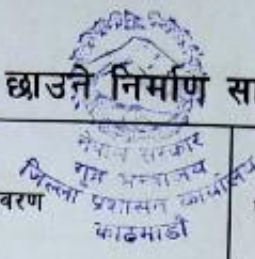 छाउने निर्माण स
नेपाल सरकार
गृह मन्त्रालय
जिल्ला प्रशासन कार्यालय
बरण
काठमाडौं